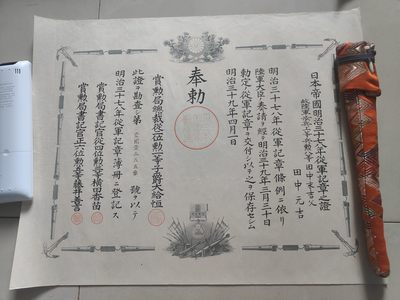 日本帝國明治三十七八年従軍記章之證
田中元吉
明治三十七八年従軍記章條例ニ依リ
陸軍大臣ノ奏請ヲ經テ明治三十九年三月三十日
勅定ノ従軍記章ヲ交付シ以テ之ヲ保存セシム
明治三十九年四月一日
奉勅
賞勲局總裁従二位勲一等子爵大給恒
此證ヲ勘査シ第
號ヲ以テ
明治三十七八年従軍記章簿冊ニ登記ス
賞勲局書記官従四位勲三等横田香苗
賞勲局書記官正六位勲五等藤井善言